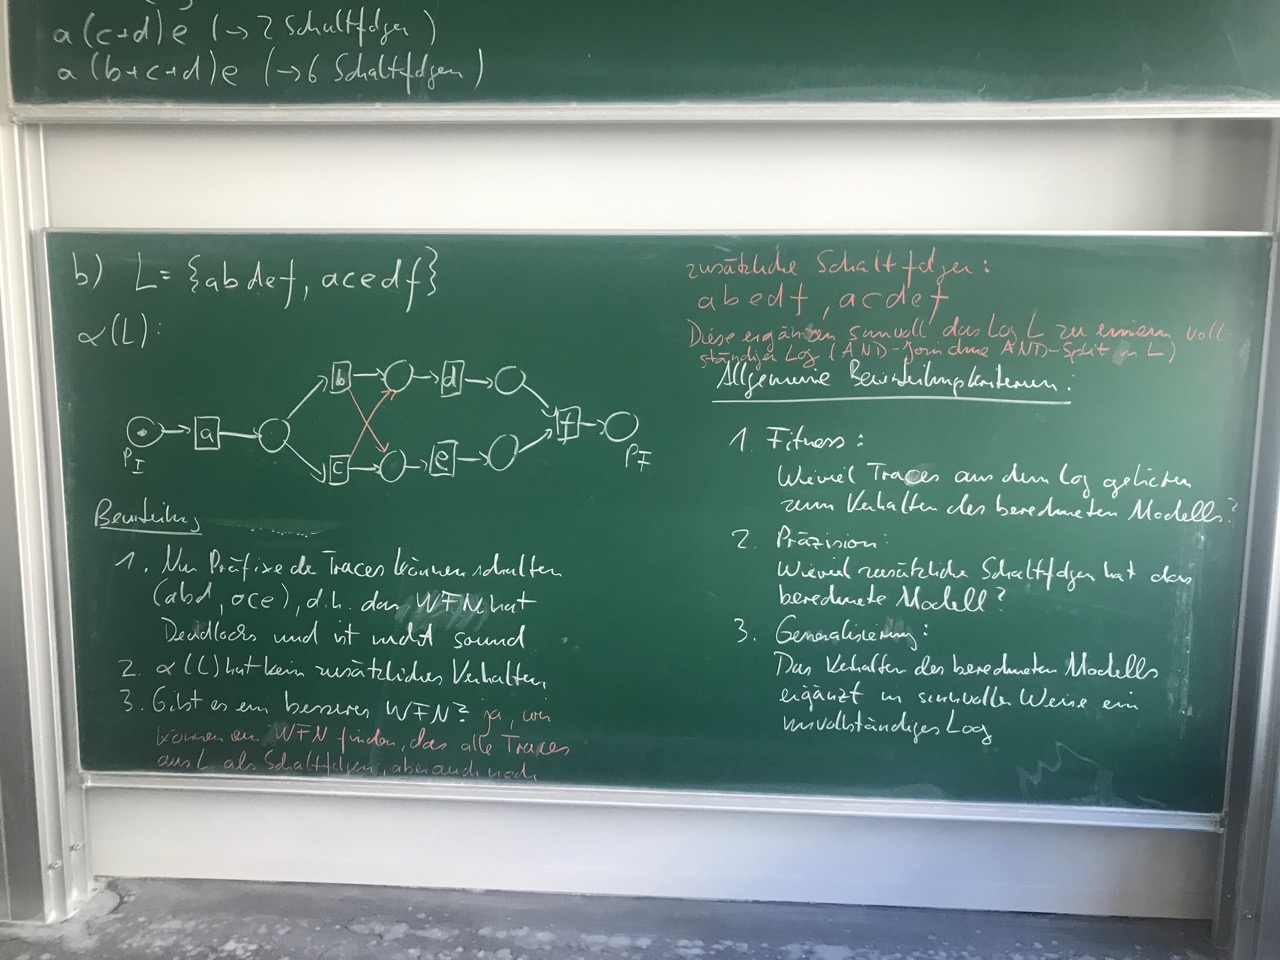 a (c+d) e (→ 2 Schaltfolgen)
a (b+c+d) e (→ 6 Schaltfolgen)
b) L = {abdef, acedf}
α(L):
b
d
a
f
c
e
P_I
P_F
Beurteilung
1. Nur Präfixe der Traces können schalten
(abd, ace), d.h. das WFN hat
Deadlocks und ist nicht sound
2. α(L) hat kein zusätzliches Verhalten
3. Gibt es ein besseres WFN? ja, wir
können ein WFN finden, das alle Traces
aus L als Schaltfolgen, aber auch noch
zusätzliche Schaltfolgen:
abedf, acdef
Diese ergänzen sinnvoll das Log L zu einem voll
ständigen Log (AND-Join ohne AND-Split in L)
Allgemeine Beurteilungskriterien:
1. Fitness:
Wieviel Traces aus dem Log gehören
zum Verhalten des berechneten Modells?
2. Präzision:
Wieviel zusätzliche Schaltfolgen hat das
berechnete Modell?
3. Generalisierung:
Das Verhalten des berechneten Modells
ergänzt in sinnvoller Weise ein
unvollständiges Log